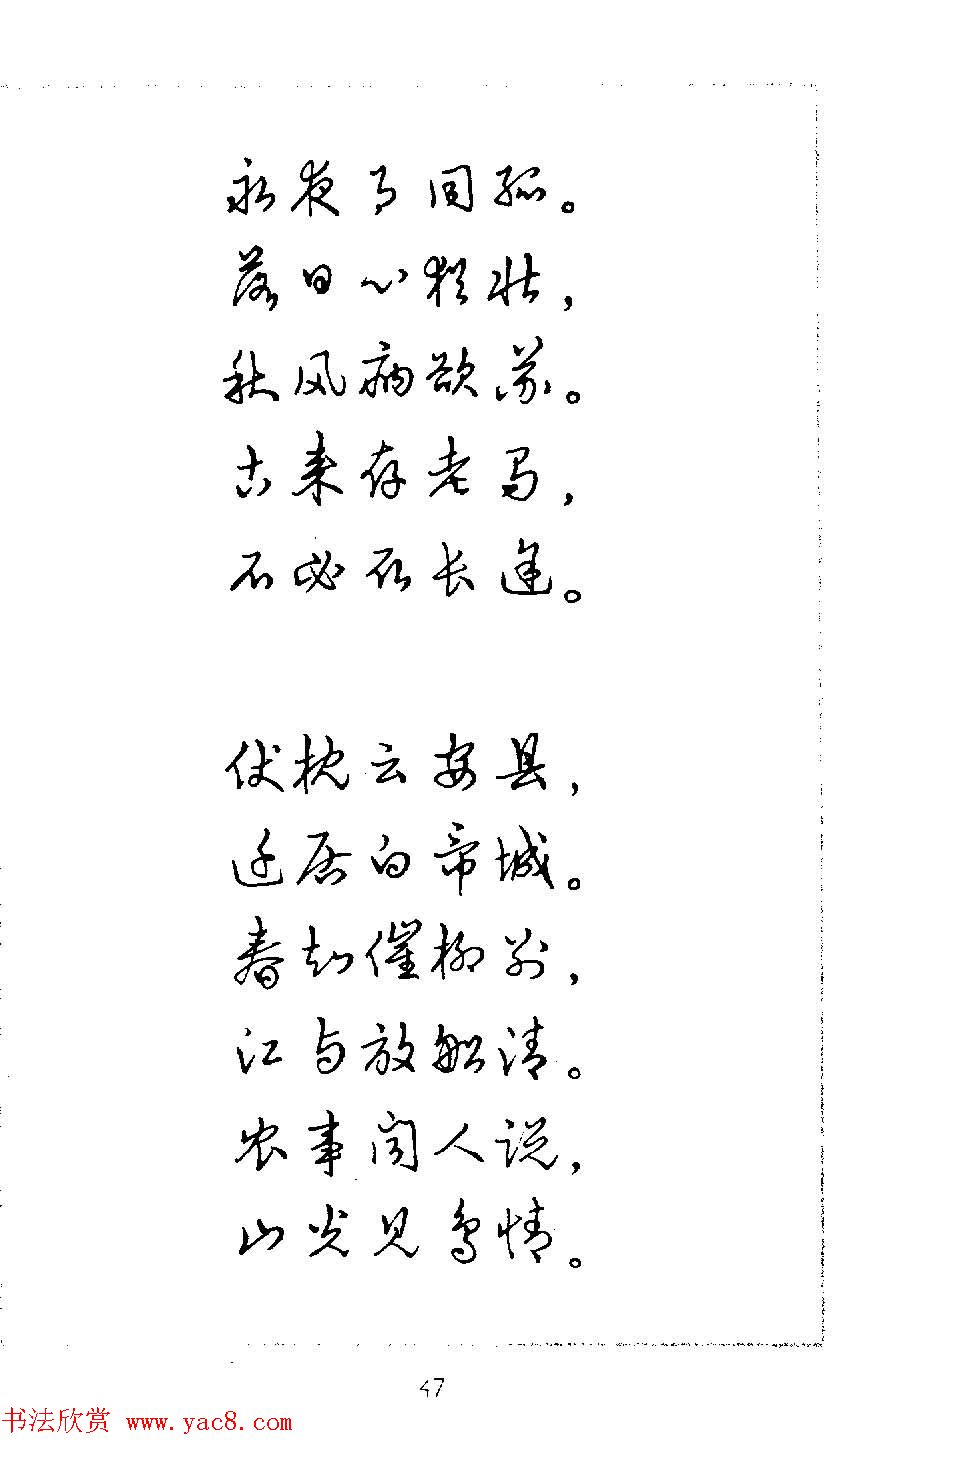 永夜月同孤。
落日心犹壮，
秋风病欲苏。
古来存老马，
不必取长途。
伏枕云安县，
迁居白帝城。
春知催柳别，
江与放船清。
农事闻人说，
山光见鸟情。
47
书法欣赏 www.yac8.com